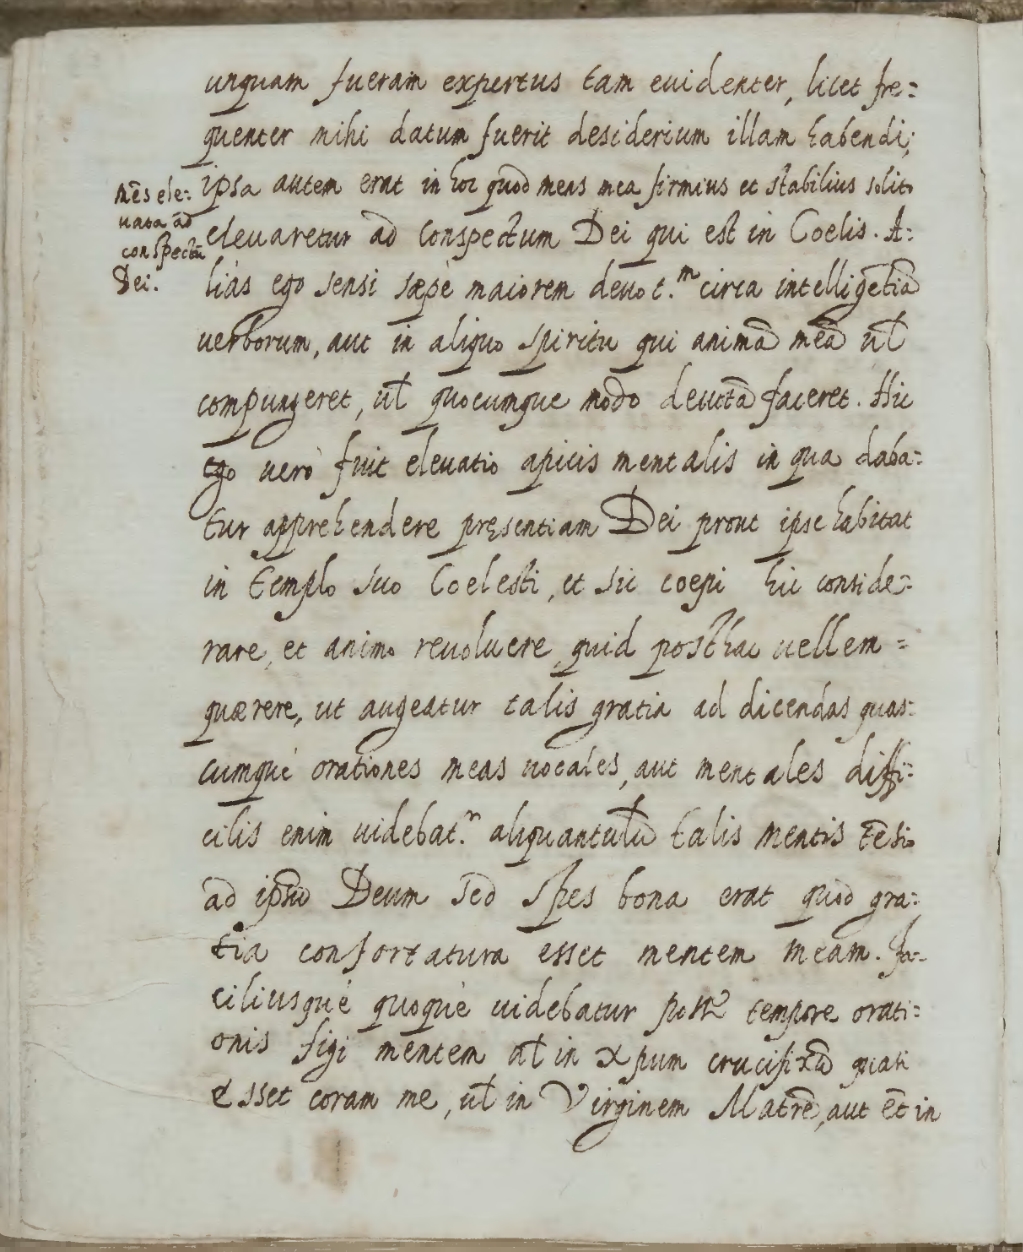 unquam fueram expertus tam euidenter, licet fre=
quenter mihi datum fuerit desiderium illam habendi;
ipsa autem erat in hoc quòd mens mea firmius et stabilius solito
eleuaretur ad Conspectum Dei qui est in Coelis. A=
liàs ego sensi sæpè maiorem deuot.m circa intelligētiā
uerborum, aut in aliquo spiritu qui animā meā ul̄
compungeret, ul̄ quocumque modo deuotā faceret. Hic
ego uerò fuit eleuatio apicis mentalis in qua daba=
tur apprehendere pręsentiam Dei prout ipse habitat
in templo suo Coelesti, et sic coepi hic conside=
rare, et animo reuoluere quid posthac uellem =
quærere, ut augeatur talis gratia ad dicendas quas=
cumquè orationes meas uocales, aut mentales diffi=
cilis enim uidebat.r aliquantulū talis mentis tēsio
ad ipsū Deum sed spes bona erat quòd gra=
tia confortatura esset mentem meam. fa=
ciliusquè quoquè uidebatur tempore orati=
onis figi mentem ul̄ in xpum crucifixū quasi
esset coram me, ul̄ in Virginem Matrē, aut ēt in
mēs ele=
uata ad
conspectū
Dei.